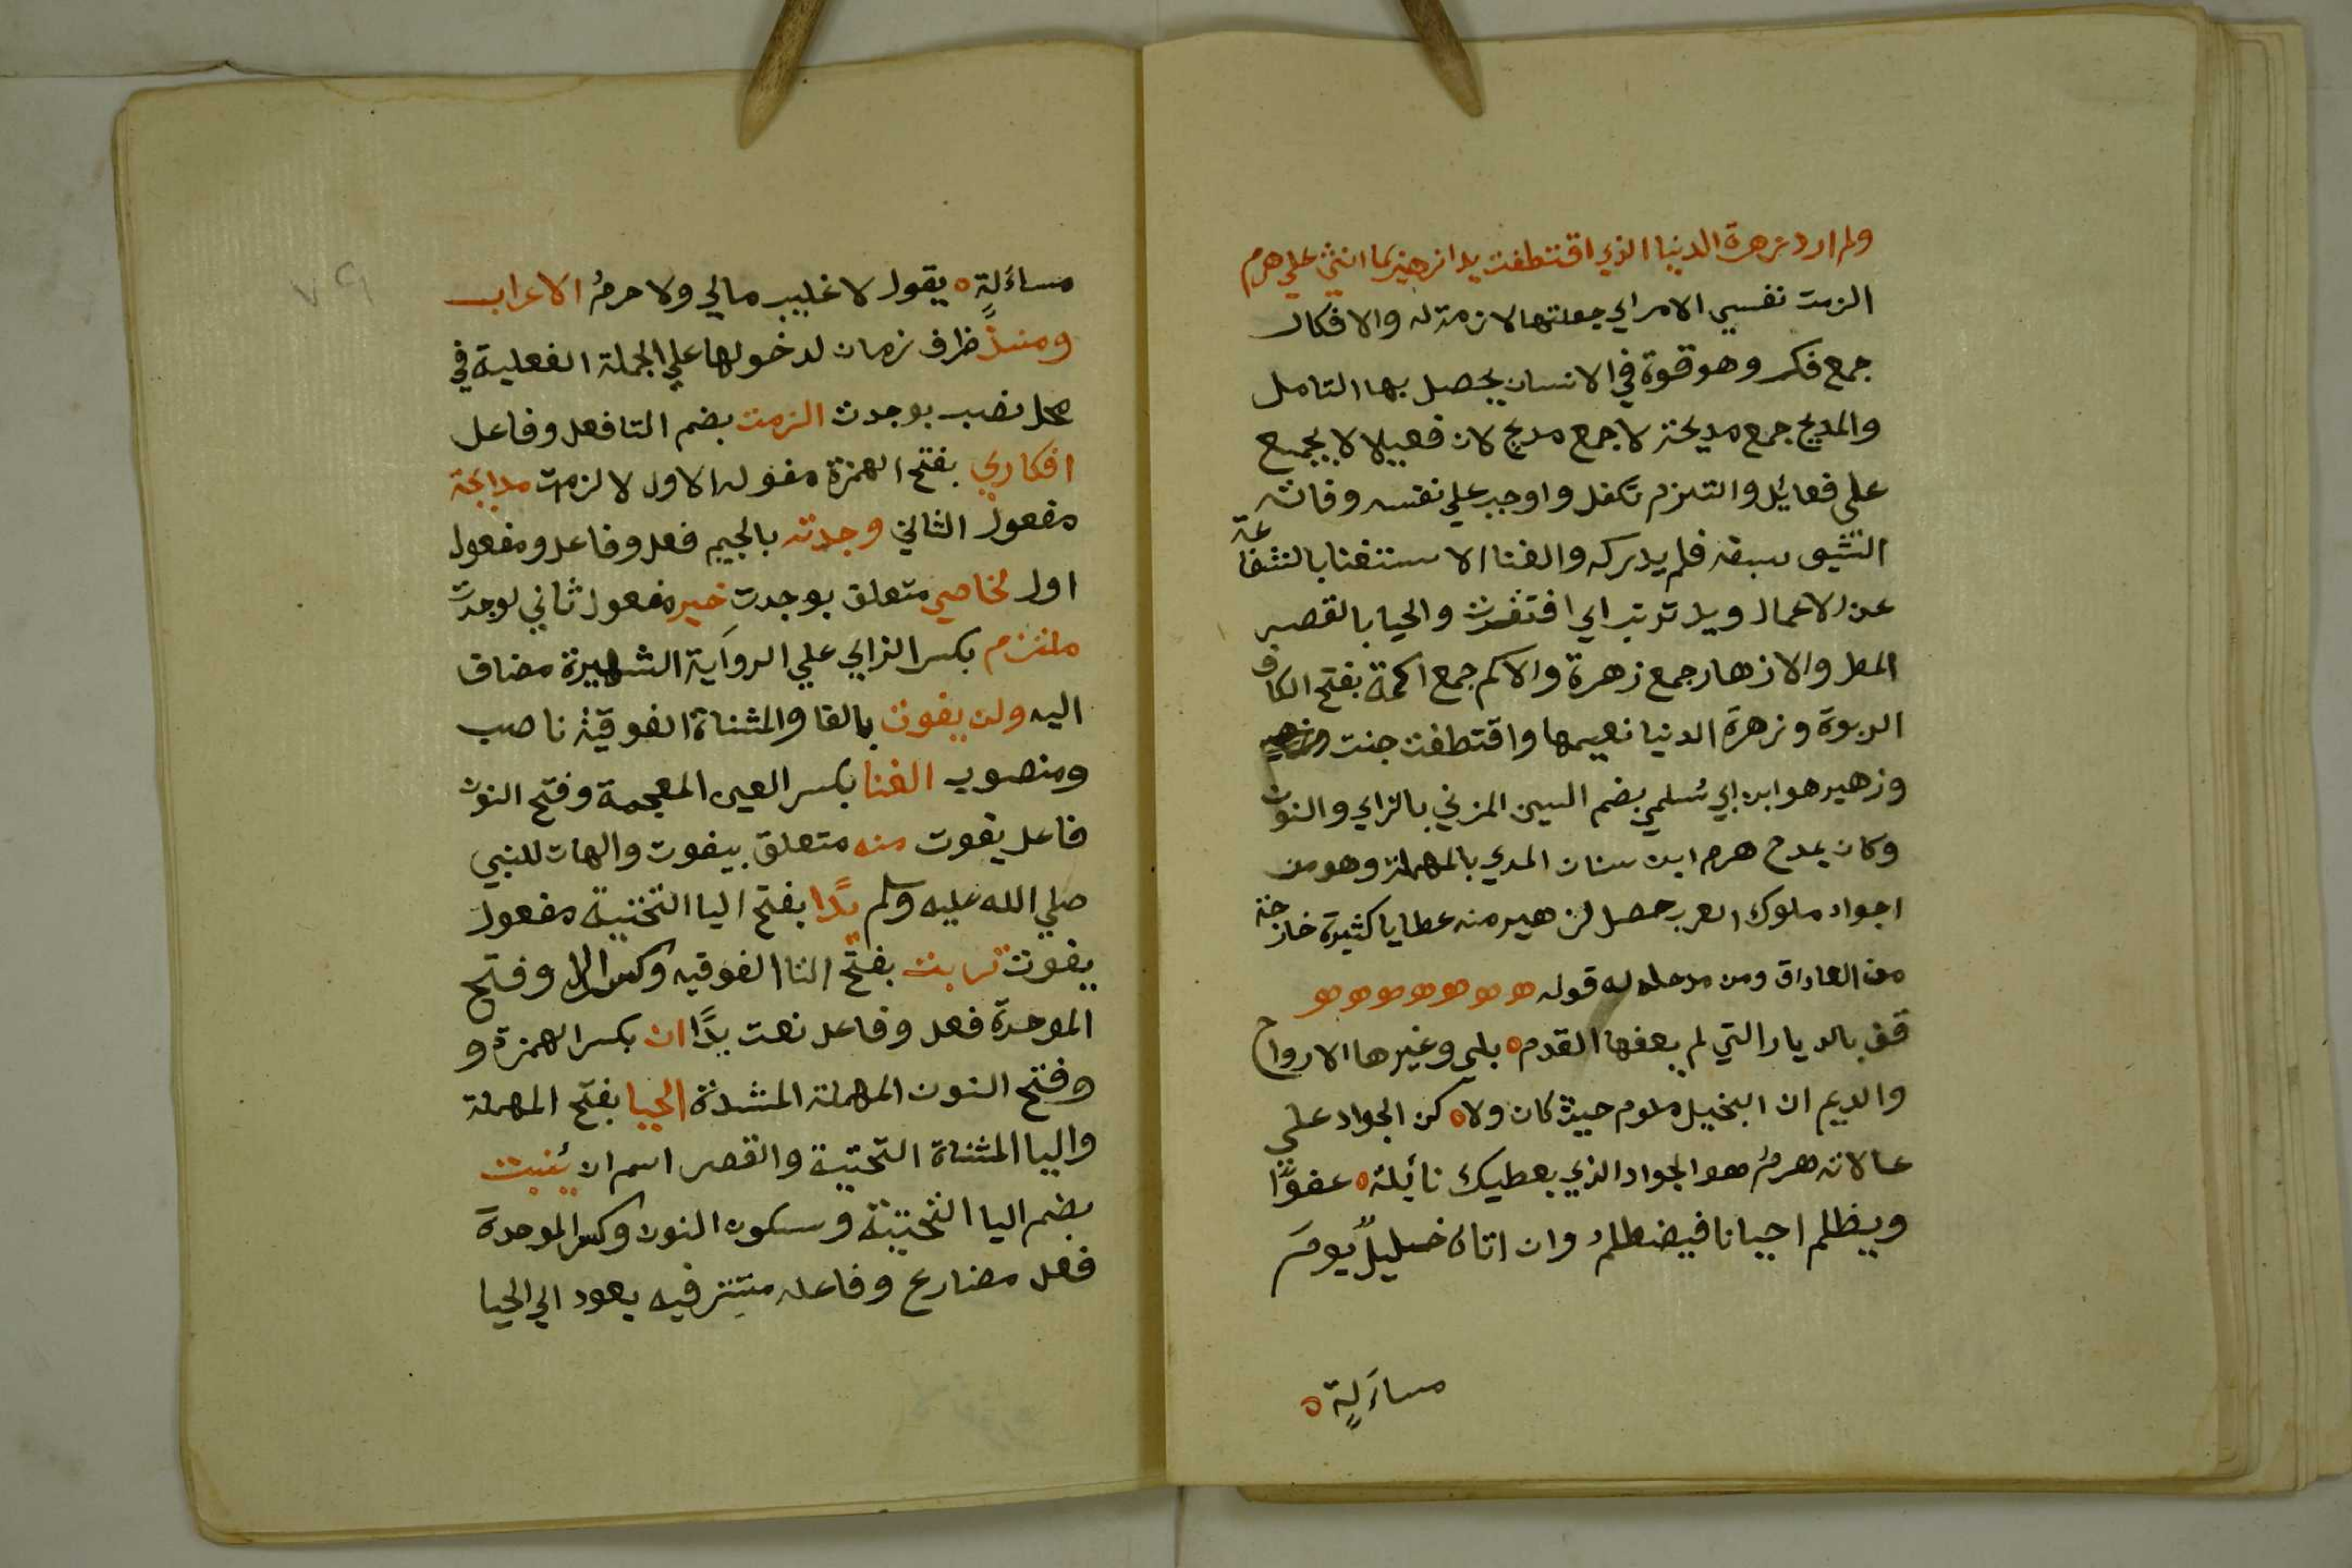 ولم ارد زهرة الدنيا الذي اقتطفت يدا زهير بما اثني علي هرم
الزمت نفسي الامر اي جعلتها لازمة له والافكار
جمع فكر وهو قوة في الانسان يحصل بها التامل
والمديح جمع مديحة لا جمع مديح لان فعيلا لا يجمع
علي فعائيل والتزم تكفل واوجب علي نفسه وفاته
الشي سبقه فلم يدركه والغنا الاستغنا بالشفاعة
عن الاعمال ويد تربت اي افتقرت والحيا بالقصر
المطر والازهار جمع زهرة والاكم جمع اكمة بفتح الكاف
الربوة وزهرة الدنيا نعيمها واقتطفت جنت
وزهير هو ابن ابي سُلمي بضم السين المزني بالزاي والنون
وكان يمدح هرم ابن سنان المدي بالمهملة وهو من
اجواد ملوك العرب حصل لزهير منه عطايا كثيرة خارجة
من العاداة ومن مدحله له قوله هو هو هو هو هو هو هو
قف بالديار التي لم يعفها القدم ه بلي وغيرها الارواح
والديم ان البخيل ملوم حيث كان ولاه كن الجواد علي
عالاته هرمُ هو الجواد الذي يعطيك نائلة ه عفوًا
ويظلم احيانا فيضطلمُ وان اتاه خليلٌ يومَ
مساءلةٍ ه
٧٩
مساءلةٍ ه يقول لا غايب مالي ولا حرمُ الاعراب
ومنذ ظرف زمان لدخولها علي الجملة الفعلية في
محل نصب بوجدت الزمت بضم التا فعل وفاعل
افكاري بفتح الهمزة مفوله الاول لالزمت مدايحة
مفعول الثاني وجدته بالجيم فعل وفاعل ومفعول
اول لخاصي متعلق بوجدت خير مفعول ثاني لوجدت
ملتزم بكسر الزاي علي الرواية الشهيرة مضاف
اليه ولن يفوت بالفا والمثناة الفوقيه ناصب
ومنصوب الغنا بكسر الغين المعجمة وفتح النون
فاعل يفوت منه متعلق بيفوت والهات للنبي
صلي الله عليه وسلم يدًا بفتح اليا التحتية مفعول
يفوت تربت بفتح التا الفوقيه وكسر الرا وفتح
الموحدة فعل وفاعل نعت يدًا ان بكسر الهمزة و
وفتح النون المهملة المشددة الحيا بفتح المهملة
واليا المثناة التحتية والقصر اسم ان يُنبت
بضم اليا التحتية وسكون النون وكسر الموحدة
فعل مضارع وفاعله مستتر فيه يعود الي الحيا